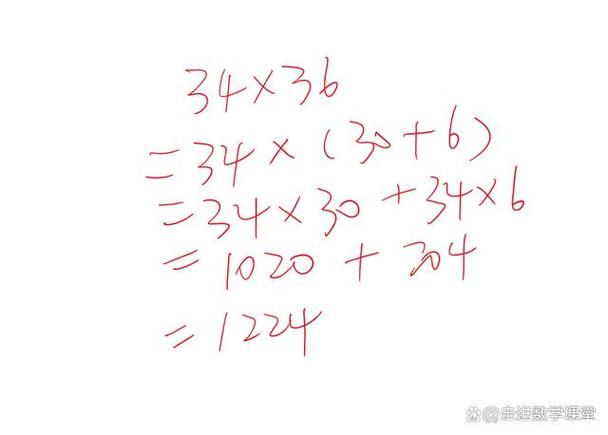 34×36
=34×(30+6)
=34×30+34×6
=1020+204
=1224
走进数学课堂